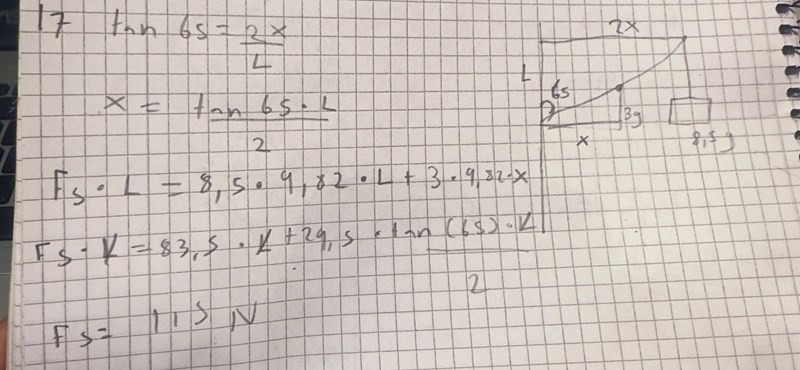 17 tan 65 = 2x / L
x = tan 65 · L / 2
Fs · L = 8,5 · 9,82 · L + 3 · 9,82 · x
Fs · L = 83,5 · L + 29,5 · tan (65) · L / 2
Fs = 115 N
2x
L
65
3g
x
8,5g